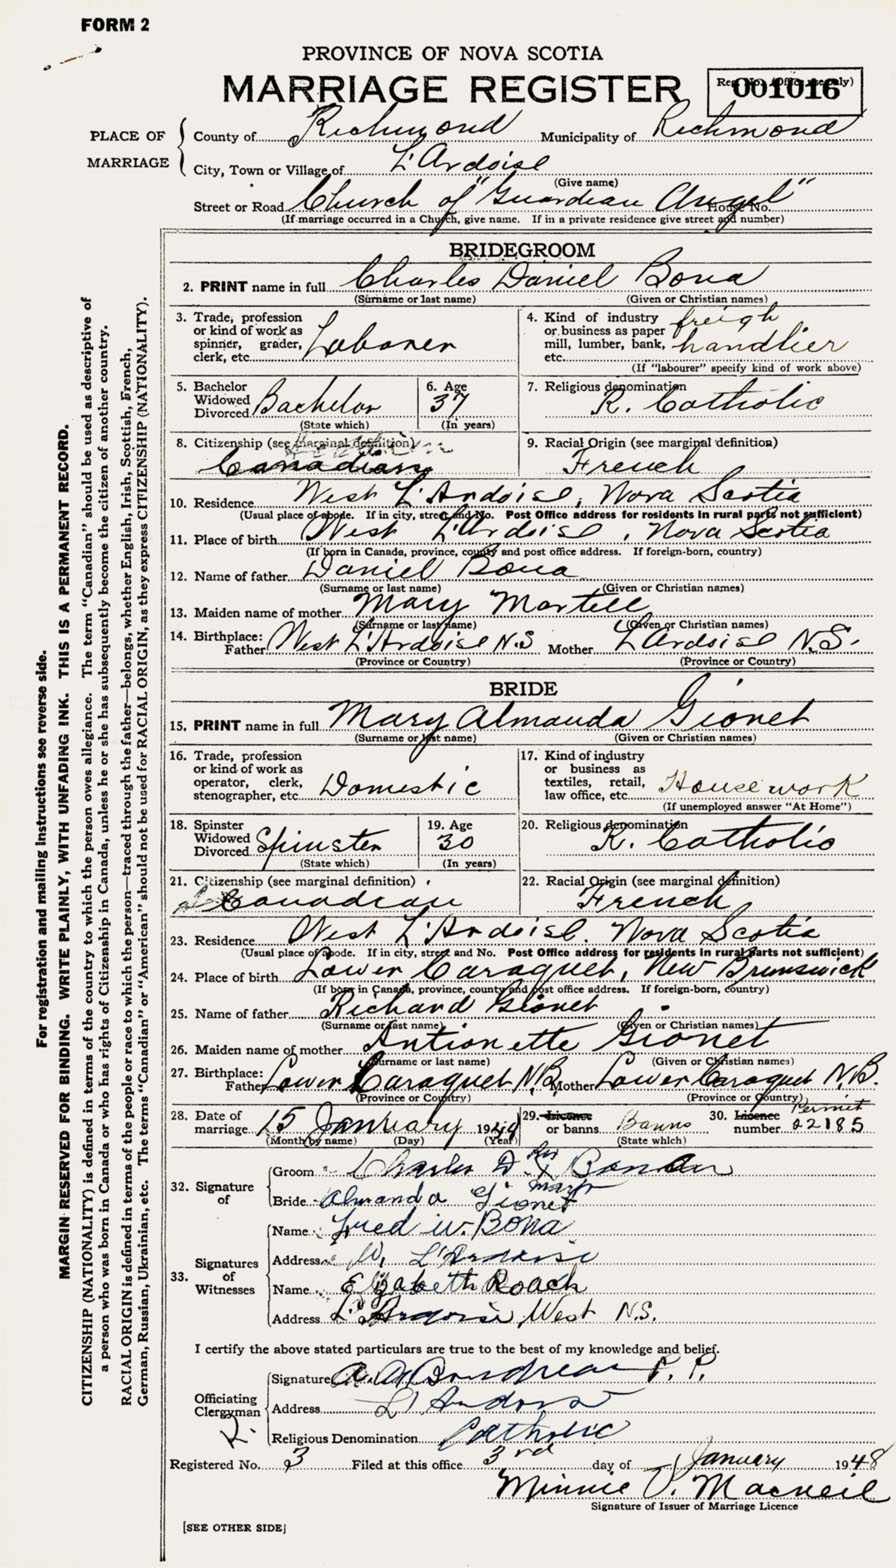 FORM 2
PROVINCE OF NOVA SCOTIA
MARRIAGE REGISTER
001016
PLACE OF MARRIAGE
County of Richmond Municipality of Richmond
City, Town or Village of L'Ardoise
(Give name)
Street or Road Church of "Guardian Angel" House No.
(If marriage occurred in a Church, give name. If in a private residence give street and number)
BRIDEGROOM
2. PRINT name in full Charles Daniel Bona
(Surname or last name) (Given or Christian names)
3. Trade, profession or kind of work as spinner, grader, clerk, etc. Laborer
4. Kind of industry or business as paper mill, lumber, bank, etc. freigh handlier
(If "labourer" specify kind of work above)
5. Bachelor Widowed Divorced Bachelor
(State which)
6. Age 37
(In years)
7. Religious denomination R. Catholic
8. Citizenship (see marginal definition) Canadian
9. Racial Origin (see marginal definition) French
10. Residence West L'Ardoise, Nova Scotia
(Usual place of abode. If in city, street and No. Post Office address for residents in rural parts not sufficient)
11. Place of birth West L'Ardoise, Nova Scotia
(If born in Canada, province, county and post office address. If foreign-born, country)
12. Name of father Daniel Bona
(Surname or last name) (Given or Christian names)
13. Maiden name of mother Mary Martell
(Surname or last name) (Given or Christian names)
14. Birthplace: Father West L'Ardoise N.S Mother L'Ardoise N.S.
(Province or Country) (Province or Country)
BRIDE
15. PRINT name in full Mary Almanda Gionet
(Surname or last name) (Given or Christian names)
16. Trade, profession or kind of work as operator, clerk, stenographer, etc. Domestic
17. Kind of industry or business as textiles, retail, law office, etc. House work
(If unemployed answer "At Home")
18. Spinster Widowed Divorced Spinster
(State which)
19. Age 30
(In years)
20. Religious denomination R. Catholic
21. Citizenship (see marginal definition) Canadian
22. Racial Origin (see marginal definition) French
23. Residence West L'Ardoise. Nova Scotia
(Usual place of abode. If in city, street and No. Post Office address for residents in rural parts not sufficient)
24. Place of birth Lower Caraquet, New Brunswick
(If born in Canada, province, county and post office address. If foreign-born, country)
25. Name of father Richard Gionet
(Surname or last name) (Given or Christian names)
26. Maiden name of mother Antionette Gionet
(Surname or last name) (Given or Christian names)
27. Birthplace: Father Lower Caraquet N.B. Mother Lower Caraquet N.B.
(Province or Country) (Province or Country)
28. Date of marriage 15 January
(Month by name) (Day) (Year)
29. Licence or banns Banns
(State which)
30. Licence number Permit 22185
32. Signature of
Groom Charles D. X
Bride Almanda Gionet
33. Signatures of Witnesses
Name Fred W. Bona
Address W. L'Ardoise
Name Elizabeth Roach
Address L'Ardoise West N.S.
I certify the above stated particulars are true to the best of my knowledge and belief.
Officiating Clergyman
Signature A. A. Boudreau P.P.
Address L'Ardoise
Religious Denomination Catholic
Registered No. 3 Filed at this office 3rd day of January 1948
Minnie Macneil
Signature of Issuer of Marriage Licence
[SEE OTHER SIDE]
For registration and mailing instructions see reverse side.
MARGIN RESERVED FOR BINDING. WRITE PLAINLY, WITH UNFADING INK. THIS IS A PERMANENT RECORD.
CITIZENSHIP (NATIONALITY) is defined in terms of the country to which the person owes allegiance. The term "Canadian" should be used as descriptive of
a person who was born in Canada or who has rights of Citizenship in Canada, unless he or she has subsequently become the citizen of another country.
RACIAL ORIGIN is defined in terms of the people or race to which the person—traced through the father—belongs, whether English, Irish, Scottish, French,
German, Russian, Ukrainian, etc. The terms "Canadian" or "American" should not be used for RACIAL ORIGIN, as they express CITIZENSHIP (NATIONALITY).